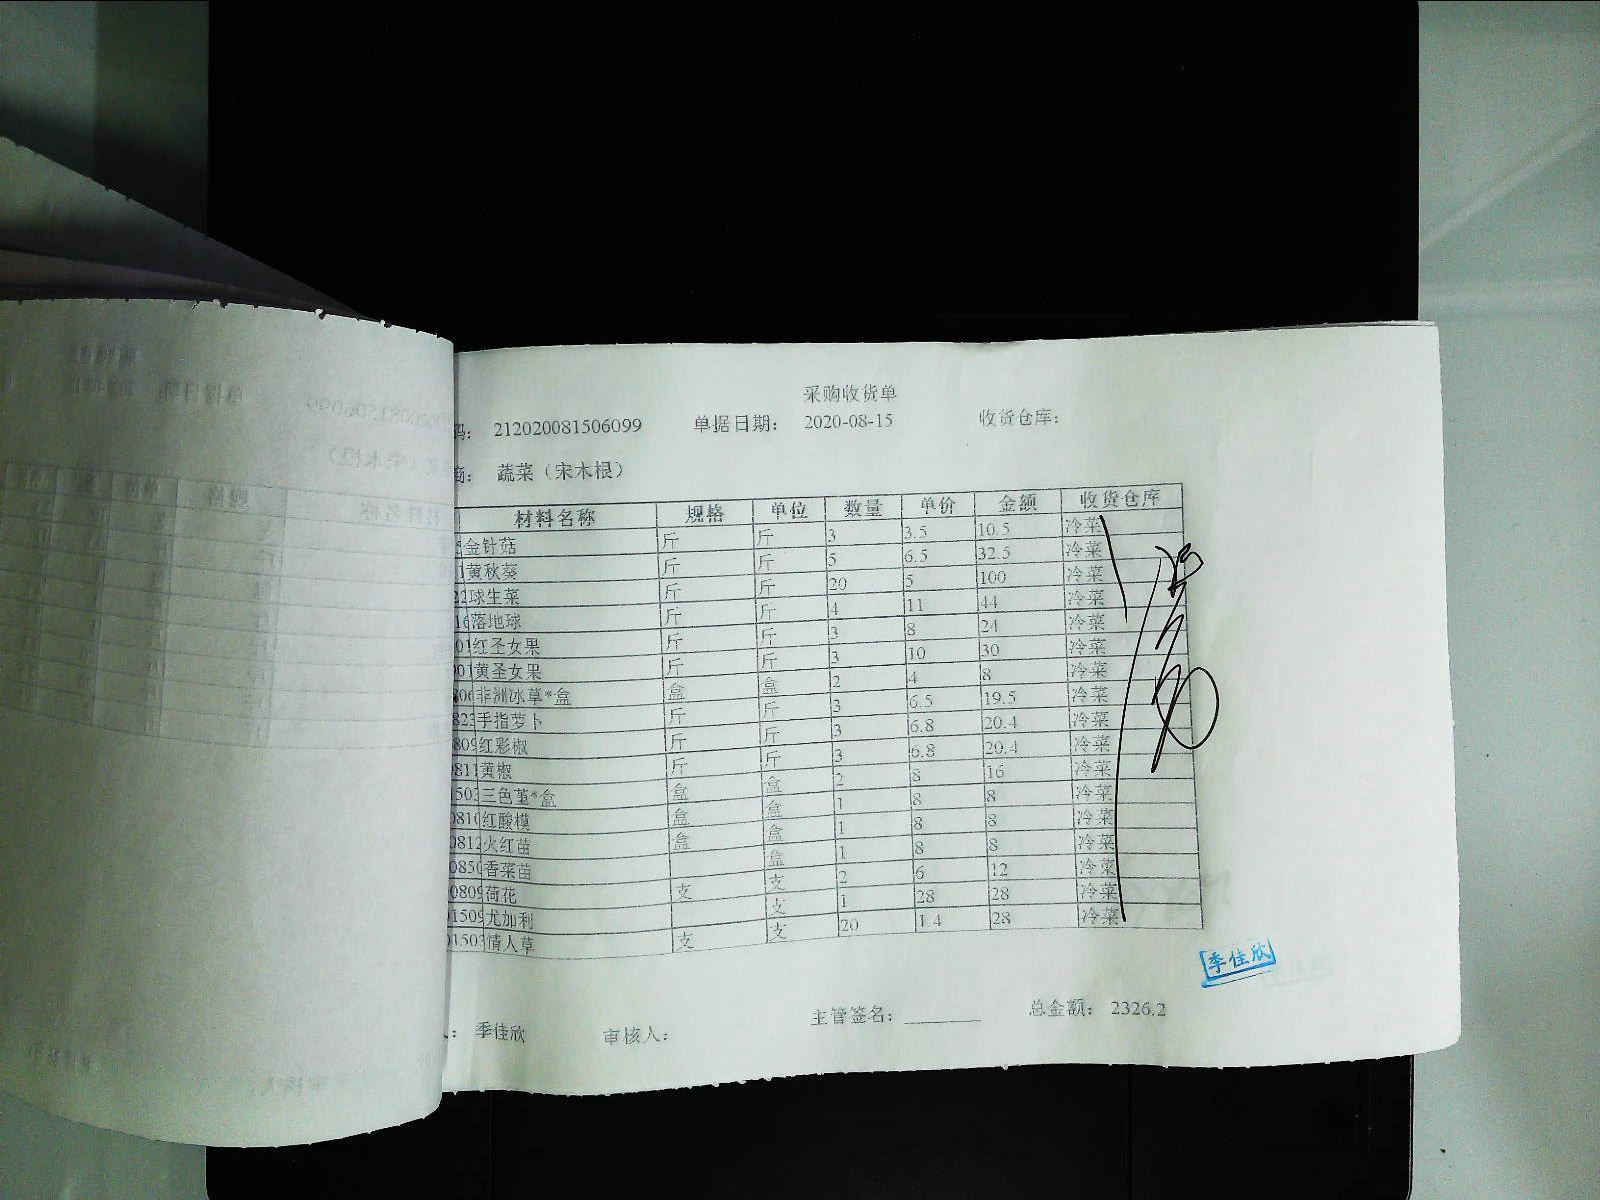 采购收货单
码： 212020081506099 单据日期： 2020-08-15 收货仓库：
商： 蔬菜（宋木根）
材料名称 规格 单位 数量 单价 金额 收货仓库
金针菇 斤 斤 3 3.5 10.5 冷菜
黄秋葵 斤 斤 5 6.5 32.5 冷菜
球生菜 斤 斤 20 5 100 冷菜
落地球 斤 斤 4 11 44 冷菜
红圣女果 斤 斤 3 8 24 冷菜
黄圣女果 斤 斤 3 10 30 冷菜
非洲冰草*盒 盒 盒 2 4 8 冷菜
手指萝卜 斤 斤 3 6.5 19.5 冷菜
红彩椒 斤 斤 3 6.8 20.4 冷菜
黄椒 斤 斤 3 6.8 20.4 冷菜
三色堇*盒 盒 盒 2 8 16 冷菜
红酸模 盒 盒 1 8 8 冷菜
火红苗 盒 盒 1 8 8 冷菜
香菜苗 盒 1 8 8 冷菜
荷花 支 支 2 6 12 冷菜
尤加利 支 1 28 28 冷菜
情人草 支 支 20 1.4 28 冷菜
季佳欣
人： 季佳欣 审核人： 主管签名： 总金额： 2326.2